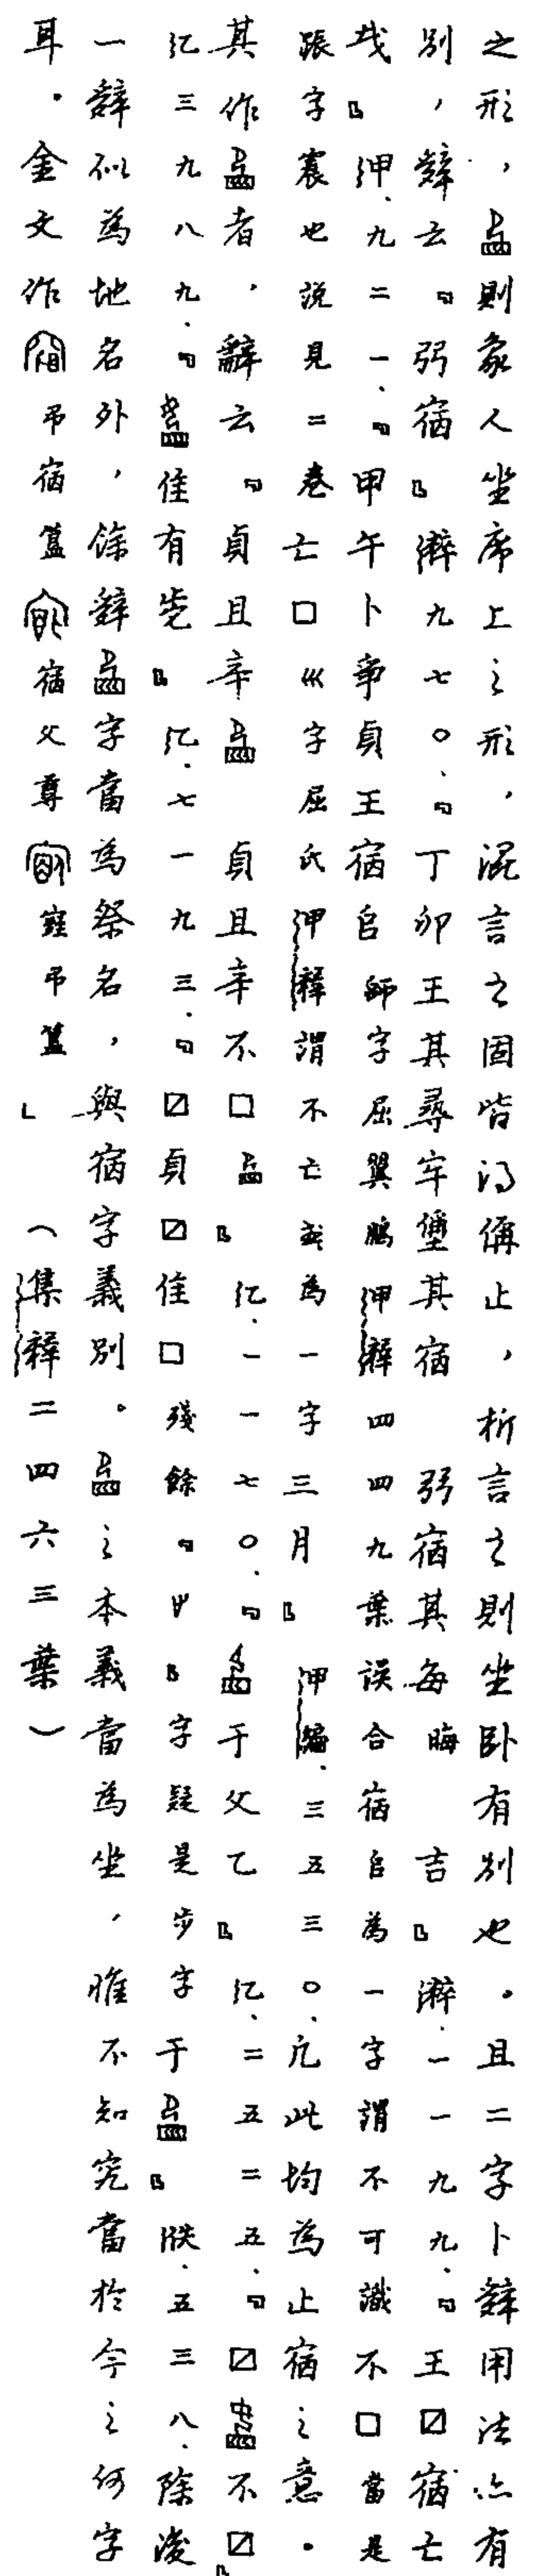 之形，則象人坐席上之形，混言之固皆得偁止，析言之則坐卧有別也。且二字卜辭用法亦有
別，辭云『弜宿』濼九七〇．『丁卯王其尋牢其宿 弜宿其每晦 吉』濼．一一九九．『王☑宿亡
𢦔』甲．九二一．『甲午卜爭貞王宿𠂤師字屈翼鵬甲釋四四九葉誤合宿𠂤為一字謂不可識不□當是
張字裏也說見二卷亡□巛字屈氏甲釋謂不亡𢦔為一字三月』甲編．三五三〇．凡此均為止宿之意。
其作者，辭云『貞且辛 貞且辛不□』乙．一一七〇．『于父乙』乙．二五二五．『☑不☑』
乙三九八九．『隹有』乙．七一九三．『☑貞☑隹□殘餘『』字疑是步字于』佚．五三八．除後
一辭似為地名外，餘辭字當為祭名，與宿字義別。之本義當為坐，惟不知究當於今之何字
耳。金文作弔宿簋宿父尊弔簋」（集釋二四六三葉）